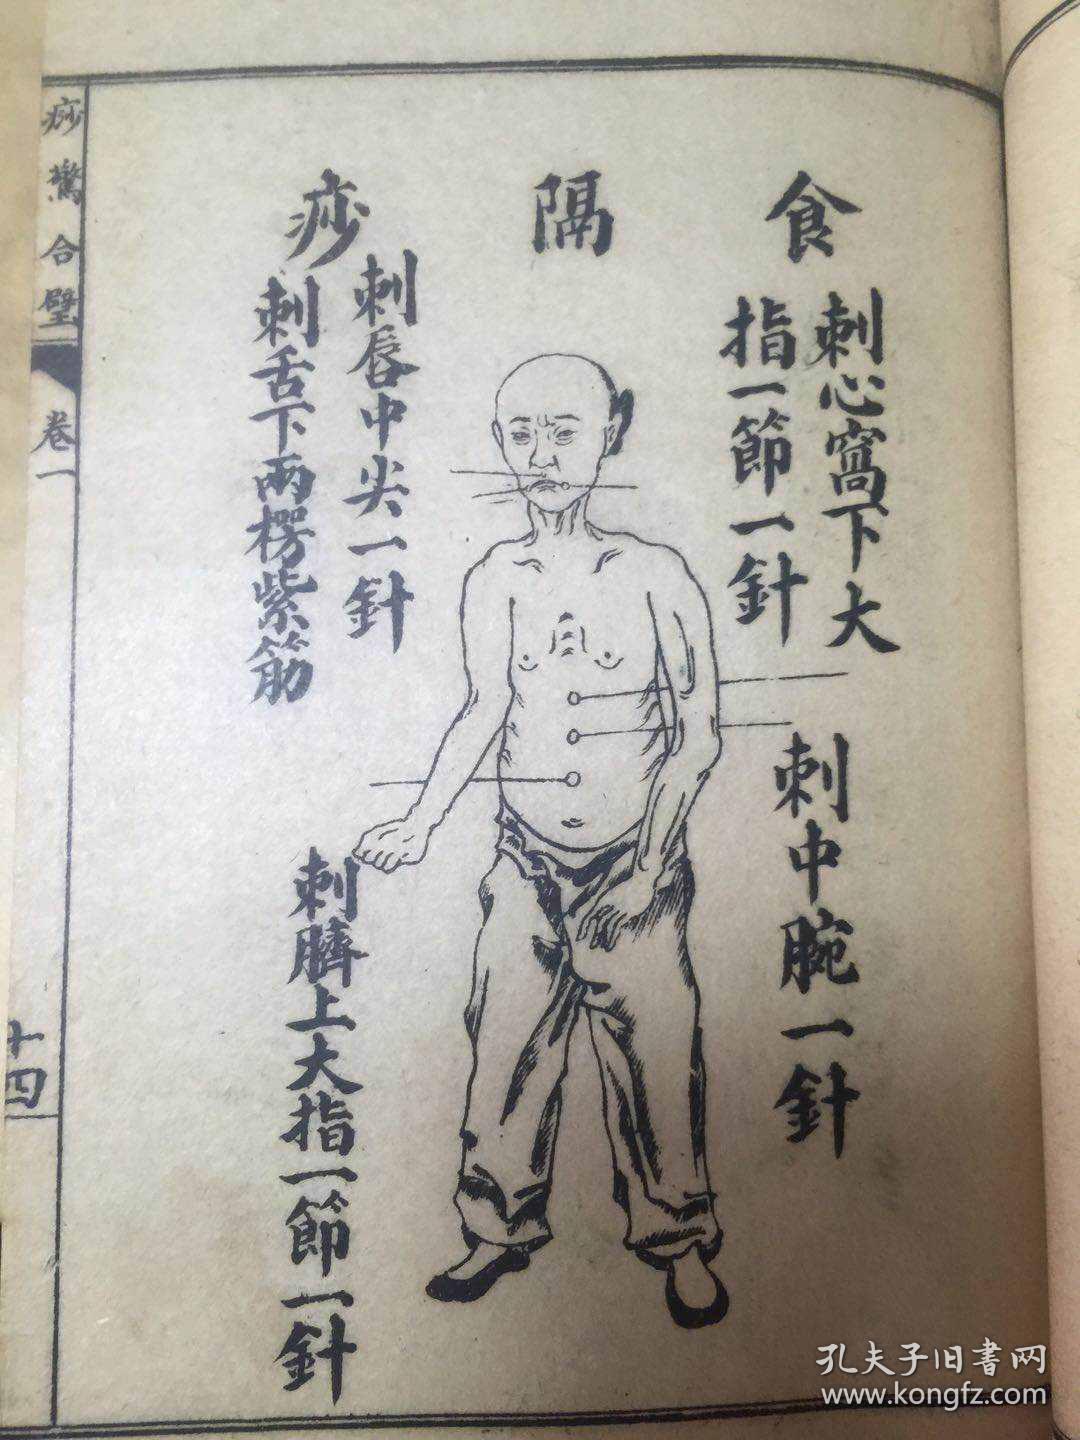 痧驚合璧
卷一
十四
食隔痧
刺心窩下大
指一節一針
刺中腕一針
刺唇中尖一針
刺舌下兩楞紫筋
刺臍上大指一節一針
孔夫子旧書网
www.kongfz.com